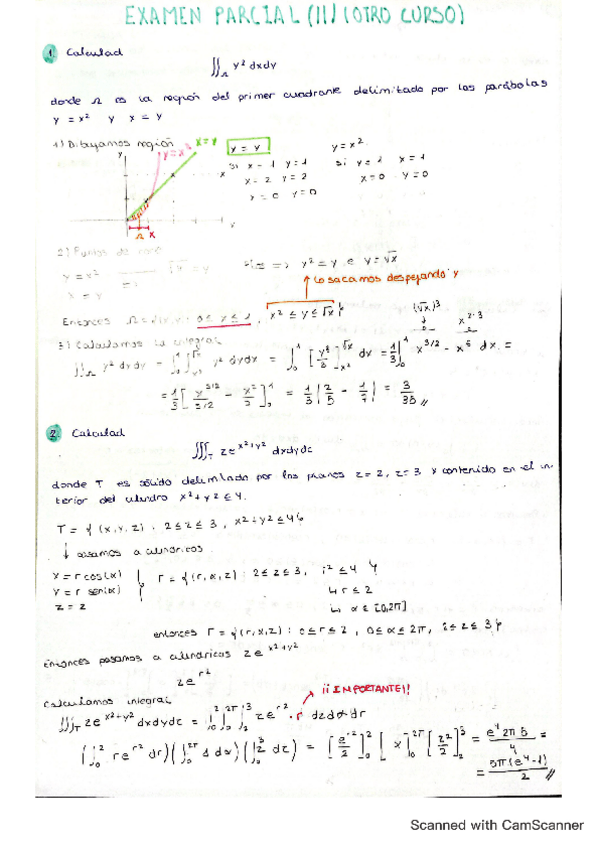 EXAMEN PARCIAL (II) (OTRO CURSO)
1 Calculad
∬_Ω y² dxdy
donde Ω es la región del primer cuadrante delimitado por las parábolas
y = x² y x = y
1) Dibujamos región
y y=x² x=y
y = y y = x²
si x = 1 y = 1 si y = 1 x = 1
x = 2 y = 2 x = 0 y = 0
x = 0 y = 0
x
Ω x
2) Puntos de
y = x² √y = y => y² = y e y = √x
x = y
lo sacamos despejando y
Entonces 0 ≤ x ≤ 1, x² ≤ y ≤ √x
(√x)³ x^{2·3}
3) Calculamos la integral
∬_Ω y² dxdy = ∫₀¹ ∫_{x²}^{√x} y² dydx = ∫₀¹ [y³/3]_{x²}^{√x} dx = 1/3 ∫₀¹ x^{3/2} - x⁶ dx =
= 1/3 [x^{5/2}/5/2 - x⁷/7]₀¹ = 1/3 |2/5 - 1/7| = 3/35 //
2 Calculad
∭_T z e^{x²+y²} dxdydz
donde T es sólido delimitado por los planos z = 2, z = 3 y contenido en el in-
terior del cilindro x² + y² ≤ 4.
T = { (x, y, z) : 2 ≤ z ≤ 3, x² + y² ≤ 4 }
↓ pasamos a cilíndricos
x = r cos(α) T = { (r, α, z) : 2 ≤ z ≤ 3, r² ≤ 4 }
y = r sen(α) ↳ r ≤ 2
z = z ↳ α ∈ [0, 2π]
entonces T = { (r, α, z) : 0 ≤ r ≤ 2, 0 ≤ α ≤ 2π, 2 ≤ z ≤ 3 }
Entonces pasamos a cilíndricos z e^{x²+y²}
z e^{r²}
¡¡IMPORTANTE!!
Calculamos integral
∭_T z e^{x²+y²} dxdydz = ∫₀² ∫₀^{2π} ∫₂³ z e^{r²} · r dzdαdr
(∫₀² r e^{r²} dr)(∫₀^{2π} 1 dα)(∫₂³ dz) = [e^{r²}/2]₀² [α]₀^{2π} [z²/2]₂³ = e⁴ 2π 5/4 =
= 5π(e⁴-1)/2 //
Scanned with CamScanner